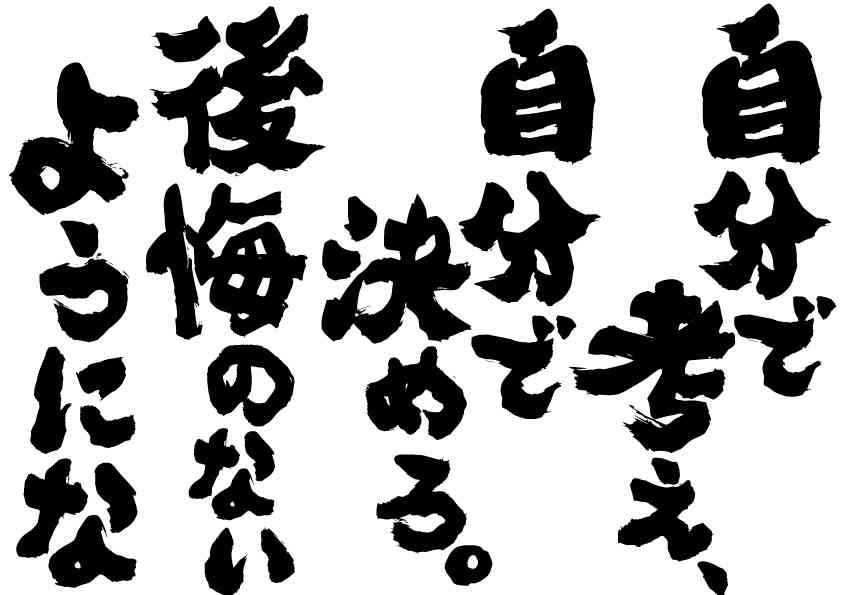 自分で考え、
自分で決めろ。
後悔のない
ようにな